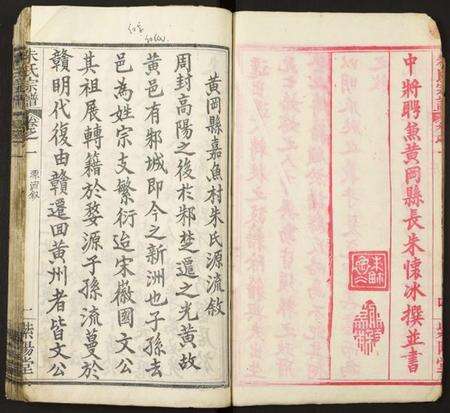 中將聘兼黃岡縣長朱懷冰撰並書
黃岡縣嘉魚村朱氏源流敘
周封高陽之後於邾楚遷之光黃故
黃邑有邾城即今之新洲也子孫去
邑為姓宗支繁衍迨宋徽國文公
其祖展轉籍於婺源子孫流蔓於
贛明代復由贛遷回黃州者皆文公
朱氏宗譜
卷之一
源流敘
一
紫陽堂